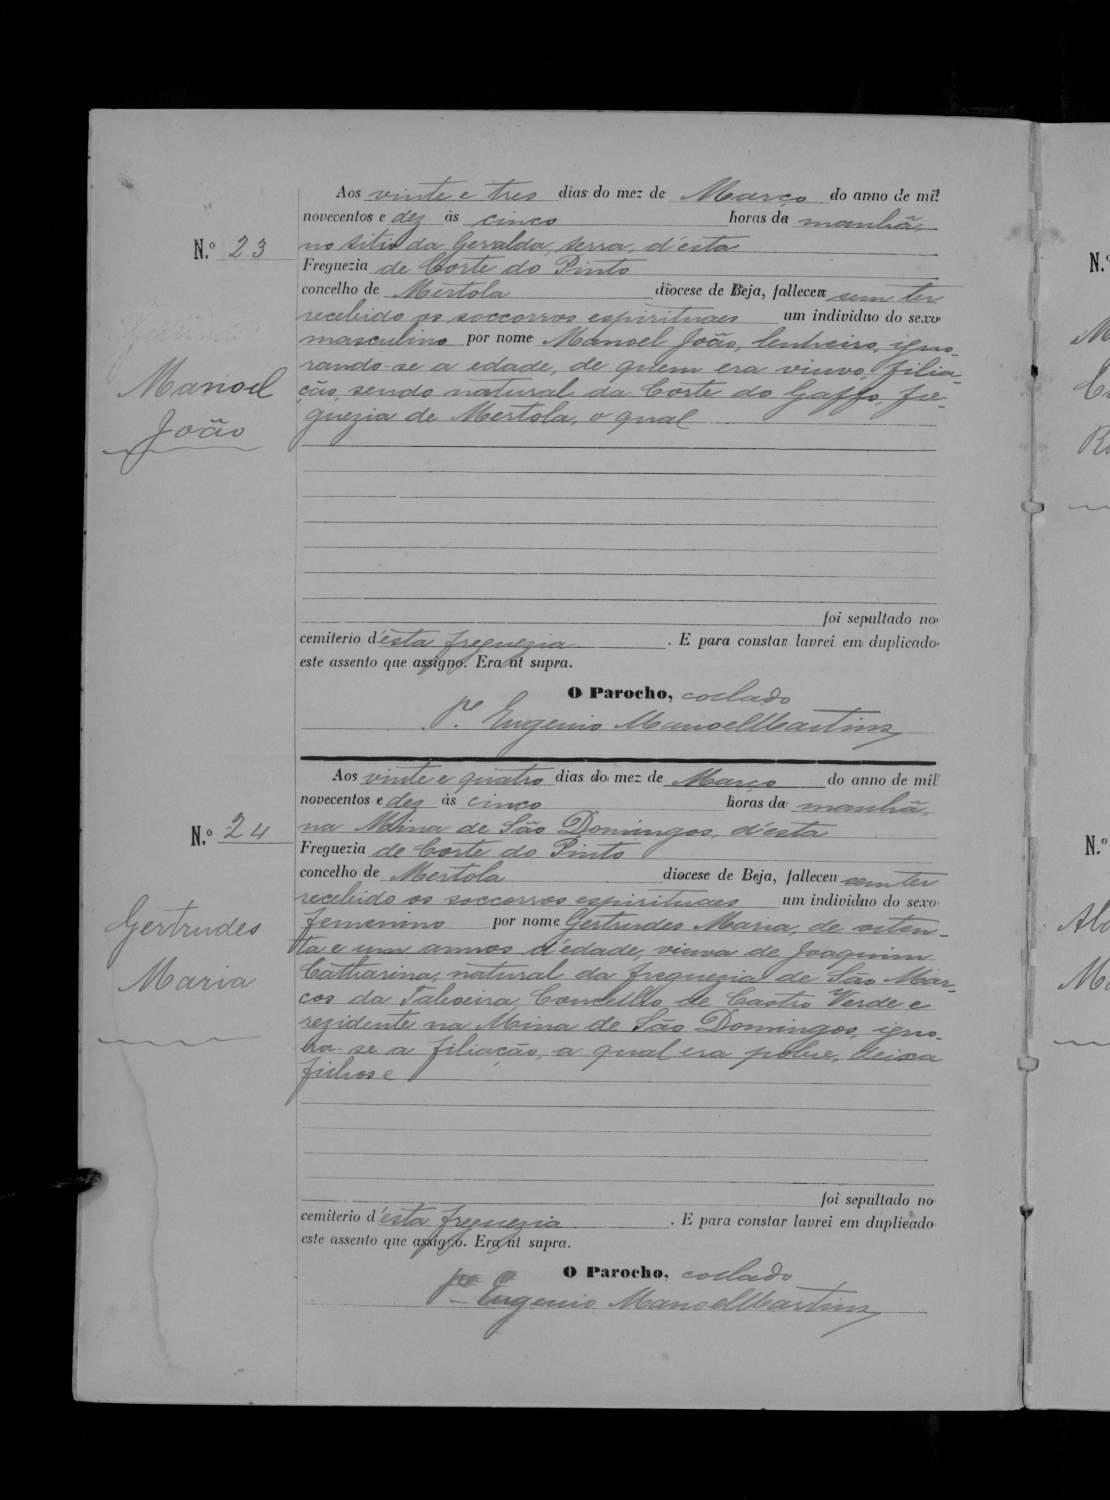 Aos vinte e tres dias do mez de Março do anno de mil
novecentos e dez ás cinco horas da manhã,
no sitio da Geralda, serra, d'esta
N.º 23
Freguezia de Corte do Pinto
concelho de Mertola diocese de Beja, falleceu sem ter
recebido os soccorros espirituaes um individuo do sexo
masculino por nome Manoel João, lenheiro, igno-
rando-se a edade, de quem era viuvo, filia-
ção, sendo natural da Corte do Gaffo, fre-
guezia de Mertola, o qual
Manoel
João
foi sepultado no
cemiterio d'esta freguezia. E para constar lavrei em duplicado
este assento que assigno. Era ut supra.
O Parocho, collado
P.e Eugenio Manoel Martins
Aos vinte e quatro dias do mez de Março do anno de mil
novecentos e dez ás cinco horas da manhã,
na Mina de São Domingos, d'esta
N.º 24
Freguezia de Corte do Pinto
concelho de Mertola diocese de Beja, falleceu sem ter
recebido os soccorros espirituaes um individuo do sexo
femenino por nome Gertrudes Maria, de oiten-
ta e um annos d'edade, viuva de Joaquim
Catharina, natural da freguezia de São Mar-
cos da Taboeira Concelho de Castro Verde e
rezidente na Mina de São Domingos, igno-
ra-se a filiação, a qual era pobre, deixa
filhos e
Gertrudes
Maria
foi sepultado no
cemiterio d'esta freguezia. E para constar lavrei em duplicado
este assento que assigno. Era ut supra.
O Parocho, collado
P.e Eugenio Manoel Martins
N.º
N.º